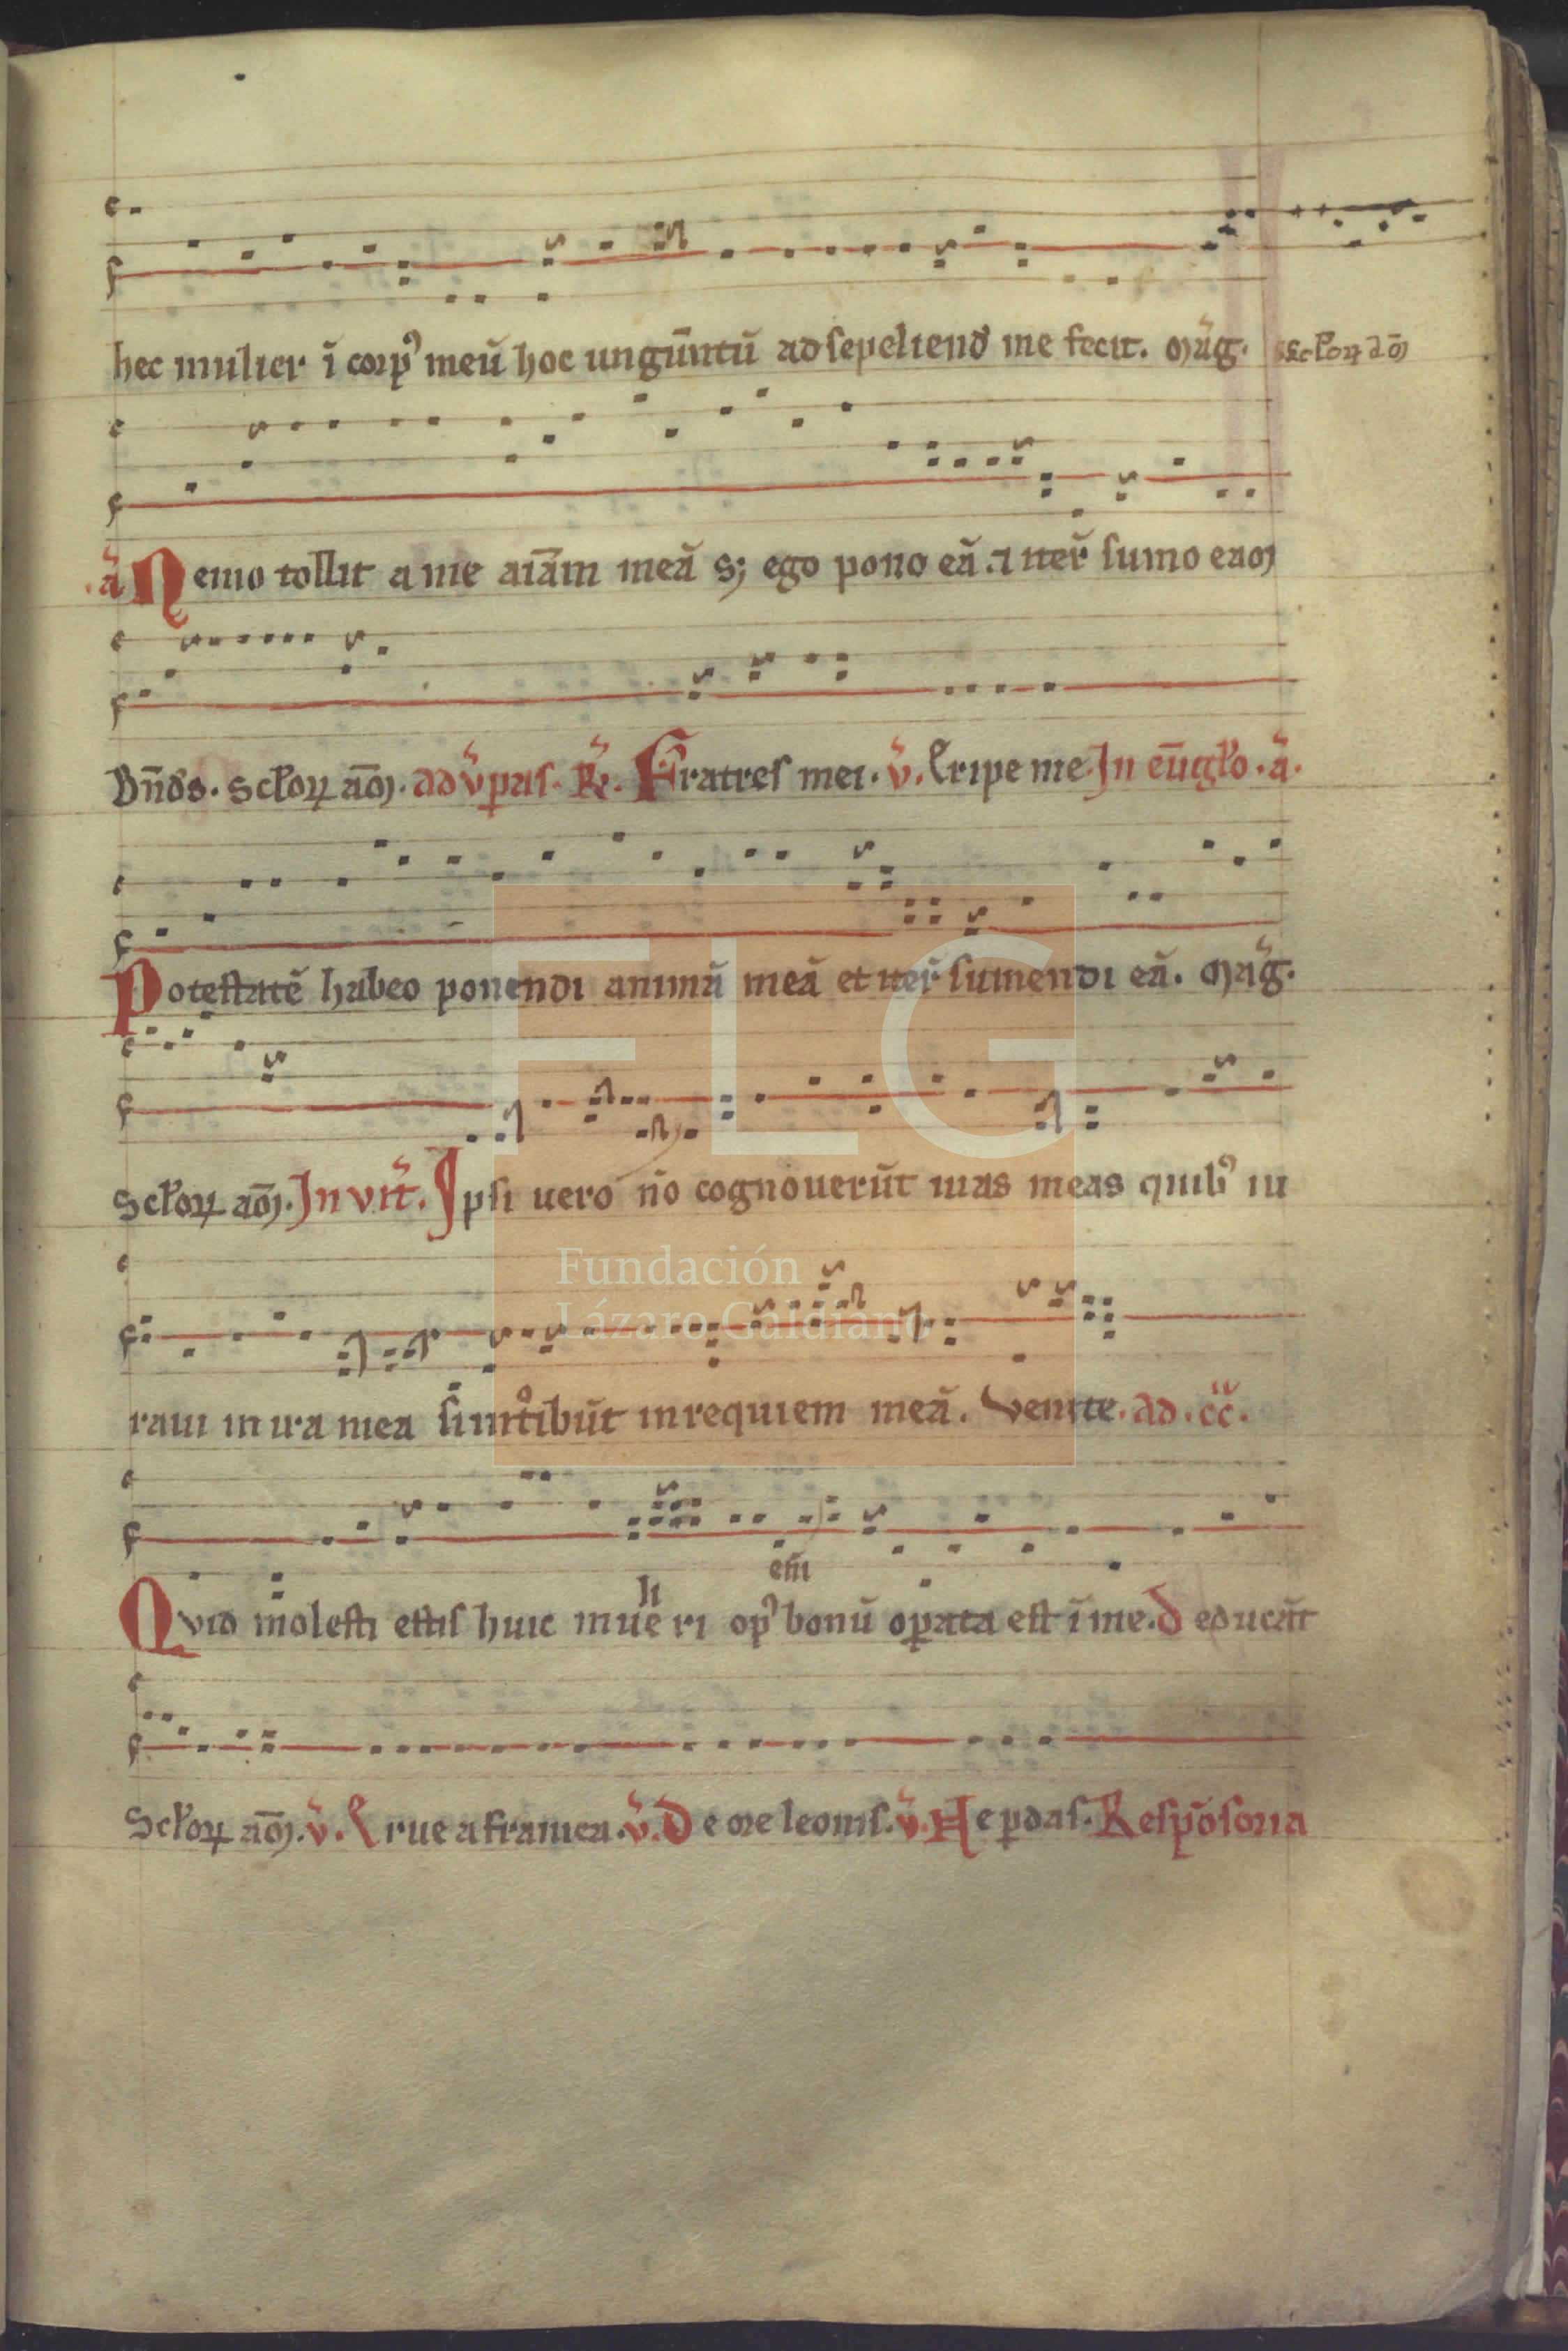 hec mulier ī corpꝰ meū hoc ungūntū ad sepeliend̄ me fecit. Mãg. Sc̄loꝝ am̄
.ā Nemo tollit a me aīam meā s; ego pono eā. ⁊ iteꝝ̄ sumo eam
Bn̄ds. Sc̄loꝝ am̄. ad v̄pas. ℟. Fratres mei. v̄. Eripe me. In eūgło. ā.
Potestatē habeo ponendi animā meā et iter̄ sumendi eā. Mãg.
Sc̄loꝝ am̄. Invit̄. Ipsi uero n̄o cognouerūt uias meas quibꝰ iu
raui in ira mea si introibūt in requiem meā. Venite. ad .cc̄.
em̄
li
Quid molesti estis huic mue ri opꝰ bonū oꝑata est ī me. Deducāt
Sc̄loꝝ am̄. v̄. Erue a framea. v̄. De ore leonis. v̄. Ne ꝑdas. Respōsoria
FLG
Fundación
Lázaro Galdiano